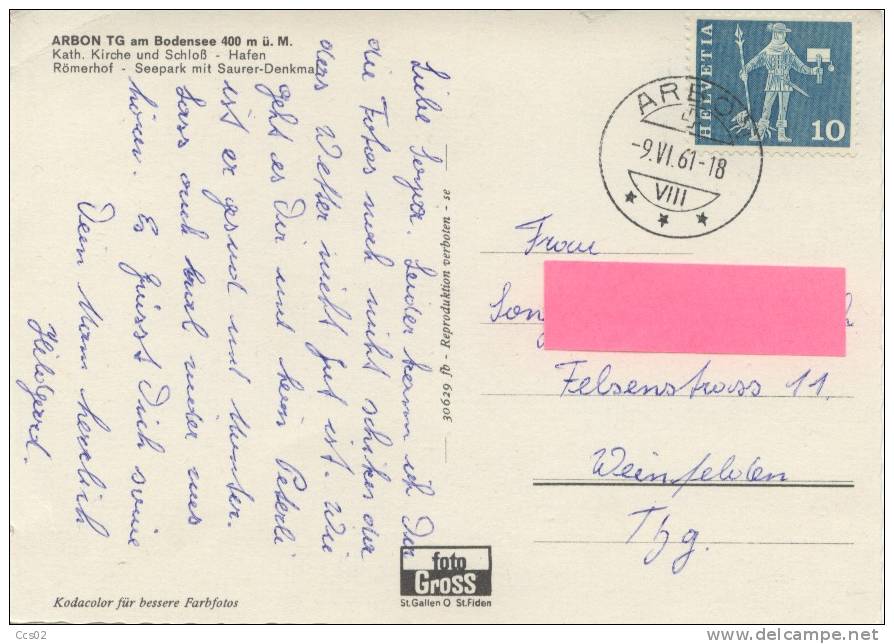 ARBON TG am Bodensee 400 m ü. M.
Kath. Kirche und Schloß - Hafen
Römerhof - Seepark mit Saurer-Denkmal
Liebe Sonja. Leider kann ich Dir
die Fotos noch nicht schiken da
das Wetter nicht gut ist. Wie
geht es Dir und dein Peterli
ist er gesund und munter.
Lass auch mal wieder was
hören. Es grüsst Dich
Dein Mami herzlich
Hildgard.
30629 fb - Reproduktion verboten - se
HELVETIA
10
ARBON
-9.VI.61-18
VIII
Frau
Son
Felsenstrass 11.
Weinfelden
Thg.
foto
Gross
St.Gallen O St.Fiden
Kodacolor für bessere Farbfotos
Ccs02
delcampe.net